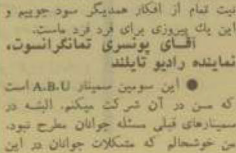 نیت تمام از افکار همدیگر سود جوییم و
این یك پیروزی برای فرد فرد ماست.
آقای پونسری تمانگرانسوت،
نماینده رادیو تایلند
● این سومین سمینار A.B.U است
که من در آن شرکت میکنم. البته در
سمینارهای قبلی مسئله جوانان مطرح نبود،
من خوشحالم که مشکلات جوانان در این